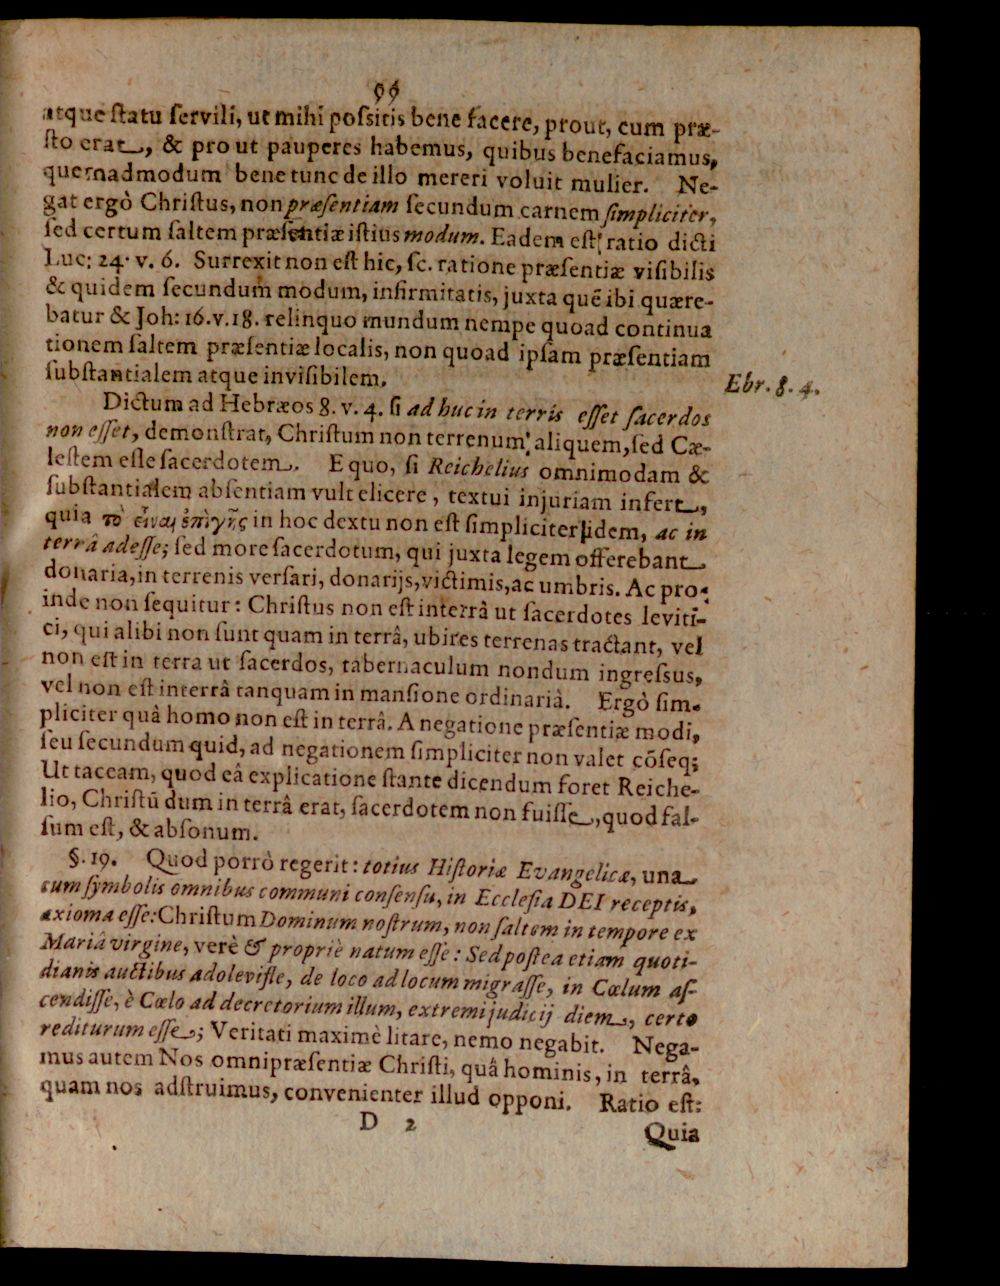 99
atque ſtatu ſervili, ut mihi poſsitis bene facere, prout, cum præ-
ſto erat, & pro ut pauperes habemus, quibus benefaciamus,
quemadmodum bene tunc de illo mereri voluit mulier. Ne-
gat ergò Chriſtus, non præſentiam ſecundum carnem ſimpliciter,
ſed certum ſaltem præſentiæ iſtius modum. Eadem eſt ratio dicti
Luc: 24. v. 6. Surrexit non eſt hic, ſc. ratione præſentiæ viſibilis
& quidem ſecundum modum, infirmitatis, juxta quẽ ibi quære-
batur & Joh: 16. v. 18. relinquo mundum nempe quoad continua
tionem ſaltem præſentiæ localis, non quoad ipſam præſentiam
ſubſtantialem atque inviſibilem.
Ebr. 8. 4.
Dictum ad Hebræos 8. v. 4. ſi ad huc in terris eſſet ſacerdos
non eſſet, demonſtrat, Chriſtum non terrenum aliquem, ſed Cæ-
leſtem eſſe ſacerdotem. E quo, ſi Reichelius omnimodam &
ſubſtantialem abſentiam vult elicere, textui injuriam infert,
quia τὸ εἶναι ἐπὶ γῆς in hoc dextu non eſt ſimpliciter idem, ac in
terrâ adeſſe; ſed more ſacerdotum, qui juxta legem offerebant
donaria, in terrenis verſari, donarijs, victimis, ac umbris. Ac pro-
inde non ſequitur: Chriſtus non eſt in terrâ ut ſacerdotes leviti-
ci, qui alibi non ſunt quam in terrâ, ubi res terrenas tractant, vel
non eſt in terra ut ſacerdos, tabernaculum nondum ingreſsus,
vel non eſt in terrâ tanquam in manſione ordinariâ. Ergò ſim-
pliciter quâ homo non eſt in terrâ. A negatione præſentiæ modi,
ſeu ſecundum quid, ad negationem ſimpliciter non valet cõſeq;
Ut taceam, quod eâ explicatione ſtante dicendum foret Reiche-
lio, Chriſtũ dum in terrâ erat, ſacerdotem non fuiſſe, quod fal-
ſum eſt, & abſonum.
§. 19. Quod porrò regerit: totius Hiſtoriæ Evangelicæ, una
cum ſymbolis omnibus communi conſenſu, in Eccleſia DEI receptis,
axioma eſſe: Chriſtum Dominum noſtrum, non ſaltem in tempore ex
Mariâ virgine, verè & propriè natum eſſe: Sed poſtea etiam quoti-
dianis auctibus adoleviſſe, de loco ad locum migraſſe, in Cœlum aſ-
cendiſſe, è Cœlo ad decretorium illum, extremi judicij diem, certo
rediturum eſſe; Veritati maximè litare, nemo negabit. Nega-
mus autem Nos omnipræſentiæ Chriſti, quâ hominis, in terrâ,
quam nos adſtruimus, convenienter illud opponi. Ratio eſt:
D 2
Quia